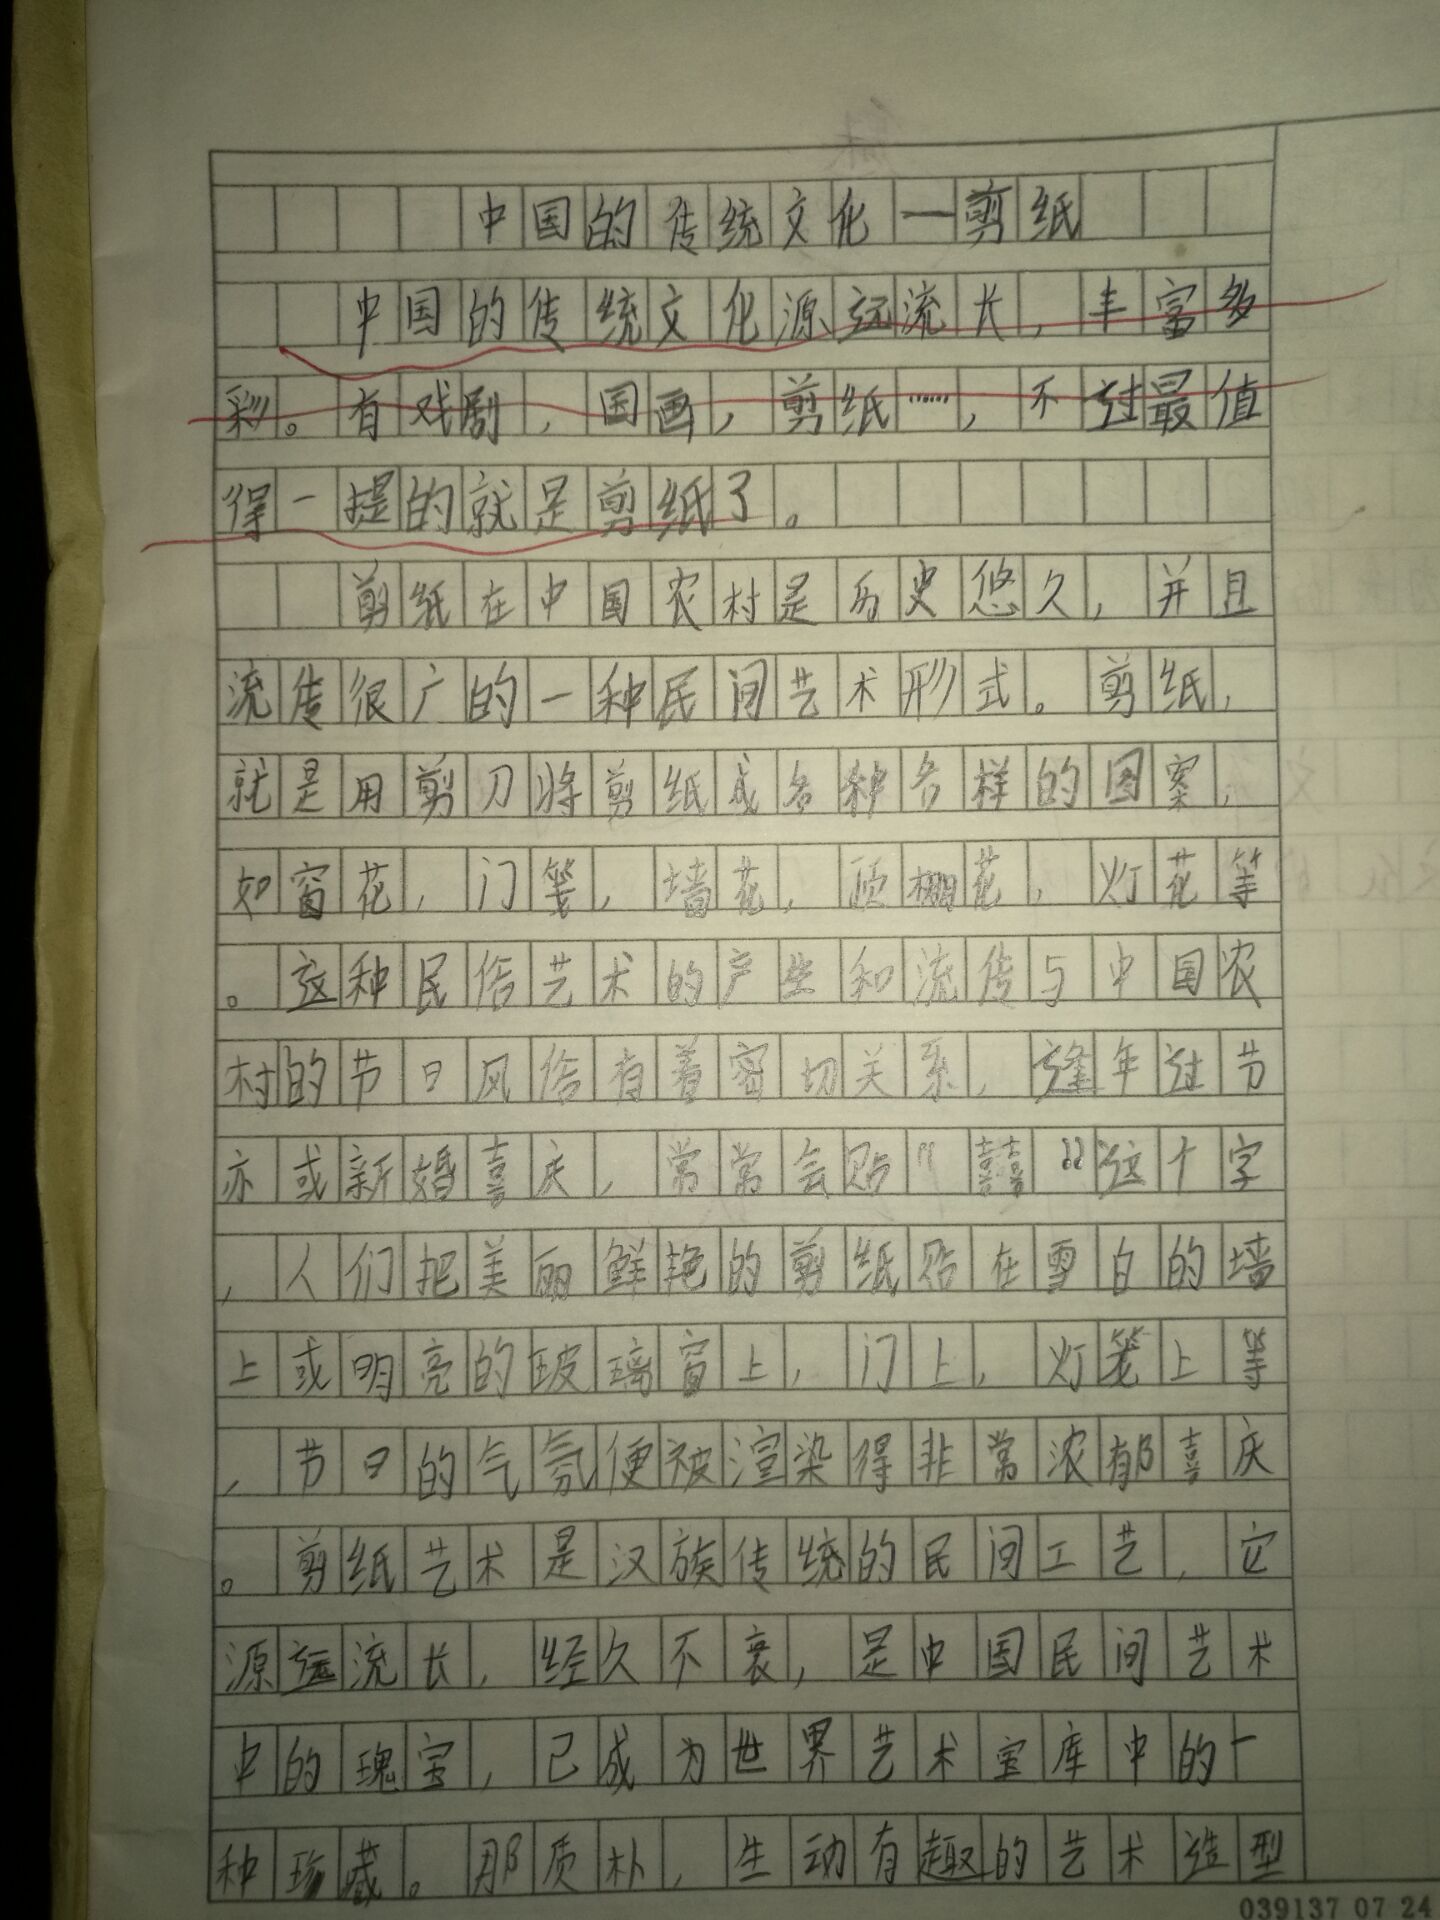 中国的传统文化—剪纸
中国的传统文化源远流长，丰富多
彩。有戏剧，国画，剪纸……，不过最值
得一提的就是剪纸了。
剪纸在中国农村是历史悠久，并且
流传很广的一种民间艺术形式。剪纸，
就是用剪刀将剪纸成各种各样的图案，
如窗花，门笺，墙花，顶棚花，灯花等
。这种民俗艺术的产生和流传与中国农
村的节日风俗有着密切关系，逢年过节
亦或新婚喜庆，常常会贴“囍”这个字
，人们把美丽鲜艳的剪纸贴在雪白的墙
上或明亮的玻璃窗上，门上，灯笼上等
，节日的气氛便被渲染得非常浓郁喜庆
。剪纸艺术是汉族传统的民间工艺，它
源远流长，经久不衰，是中国民间艺术
中的瑰宝，已成为世界艺术宝库中的一
种珍藏。那质朴，生动有趣的艺术造型
039137 07 24